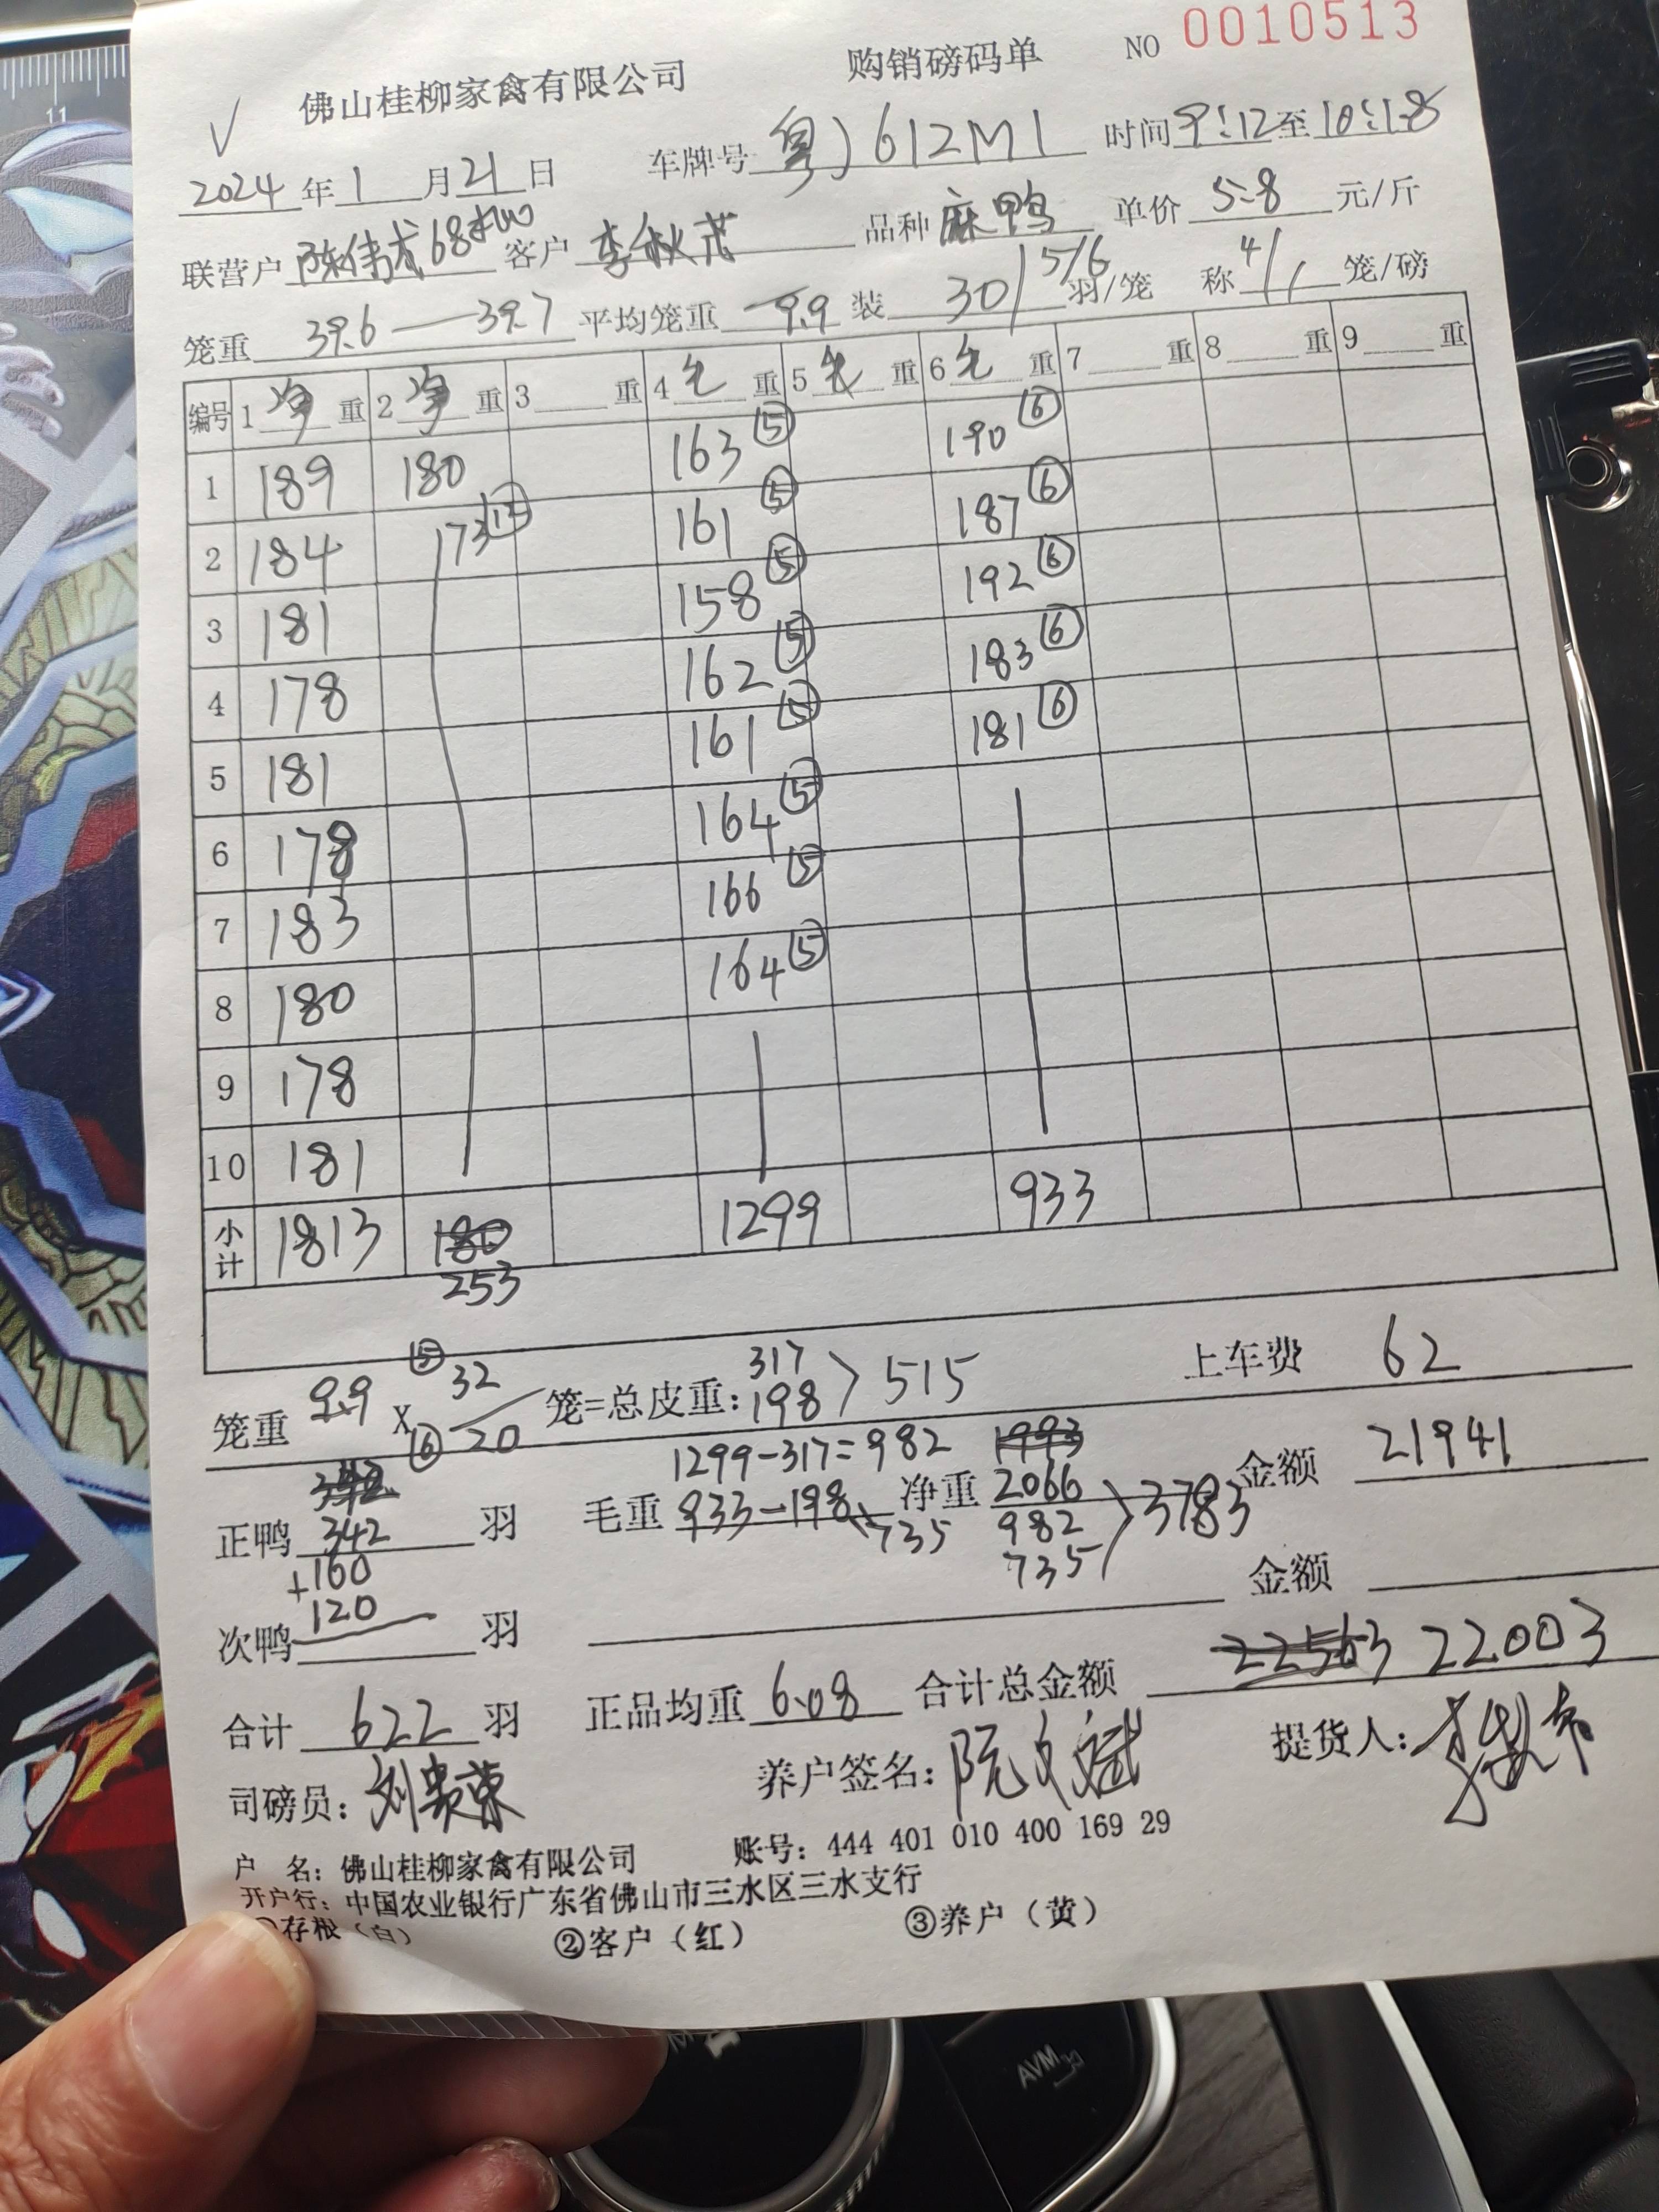 佛山桂柳家禽有限公司 购销磅码单 NO 0010513
2024年1月21日 车牌号 粤J612M1 时间 9:12至10:18
联营户 客户 李秋 品种 麻鸭 单价 5.8 元/斤
笼重 39.6—39.7 平均笼重 9.9 装 30/5/6 羽/笼 称 4/1 笼/磅
编号 1净重 2净重 3重 4毛重 5毛重 6毛重 7重 8重 9重
1 189 180 163⑤ 190⑥
2 184 173⑫ 161⑤ 187⑥
3 181 158⑤ 192⑥
4 178 162⑤ 183⑥
5 181 161⑤ 181⑥
6 178 164⑤
7 183 166⑤
8 180 164⑤
9 178
10 181
小计 1813 180 1299 933
253
笼重 9.9 X ⑤ 32 / ⑥ 20 笼=总皮重: 317 198 > 515 上车费 62
342 1299-317=982 1993
正鸭 342 羽 毛重 933-198 735 净重 2066 982 735 > 3783 金额 21941
+160
120
次鸭 羽 金额
合计 622 羽 正品均重 6.08 合计总金额 22563 22003
司磅员: 刘贵荣 养户签名: 阮文斌 提货人:
户 名: 佛山桂柳家禽有限公司 账号: 444 401 010 400 169 29
开户行: 中国农业银行广东省佛山市三水区三水支行
①存根(白) ②客户(红) ③养户(黄)
11
AVM